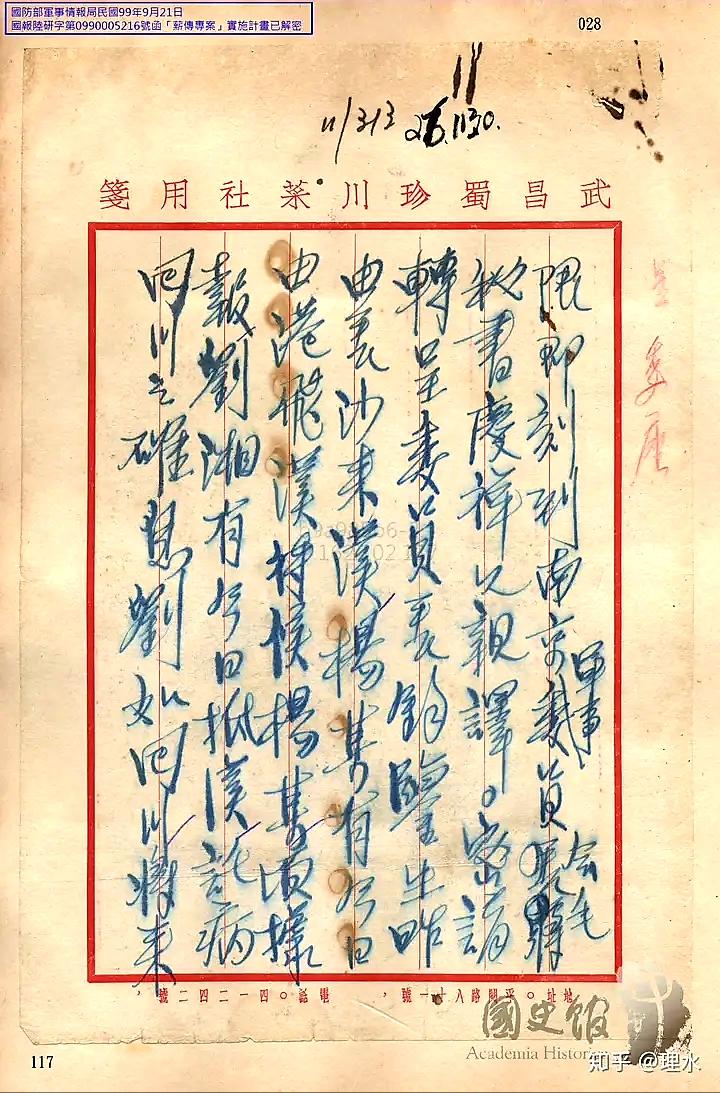 國防部軍事情報局民國99年9月21日
國報陸研字第0990005216號函「薪傳專案」實施計畫已解密
028
11/313 26.1130.
武昌蜀珍川菜社用箋
呈委座
限即刻到南京軍事委員會毛
秘書慶祥兄親譯。密請
轉呈委員長鈞鑒生昨
由長沙來漢楊某有今日
由港飛漢持候楊某頃據
報劉湘有今日抵漢託病
回川之確息劉如回川將來
地址。閱路八十一號，電話。四一二四二號，
國史館
Academia Historica
117
知乎 @理水